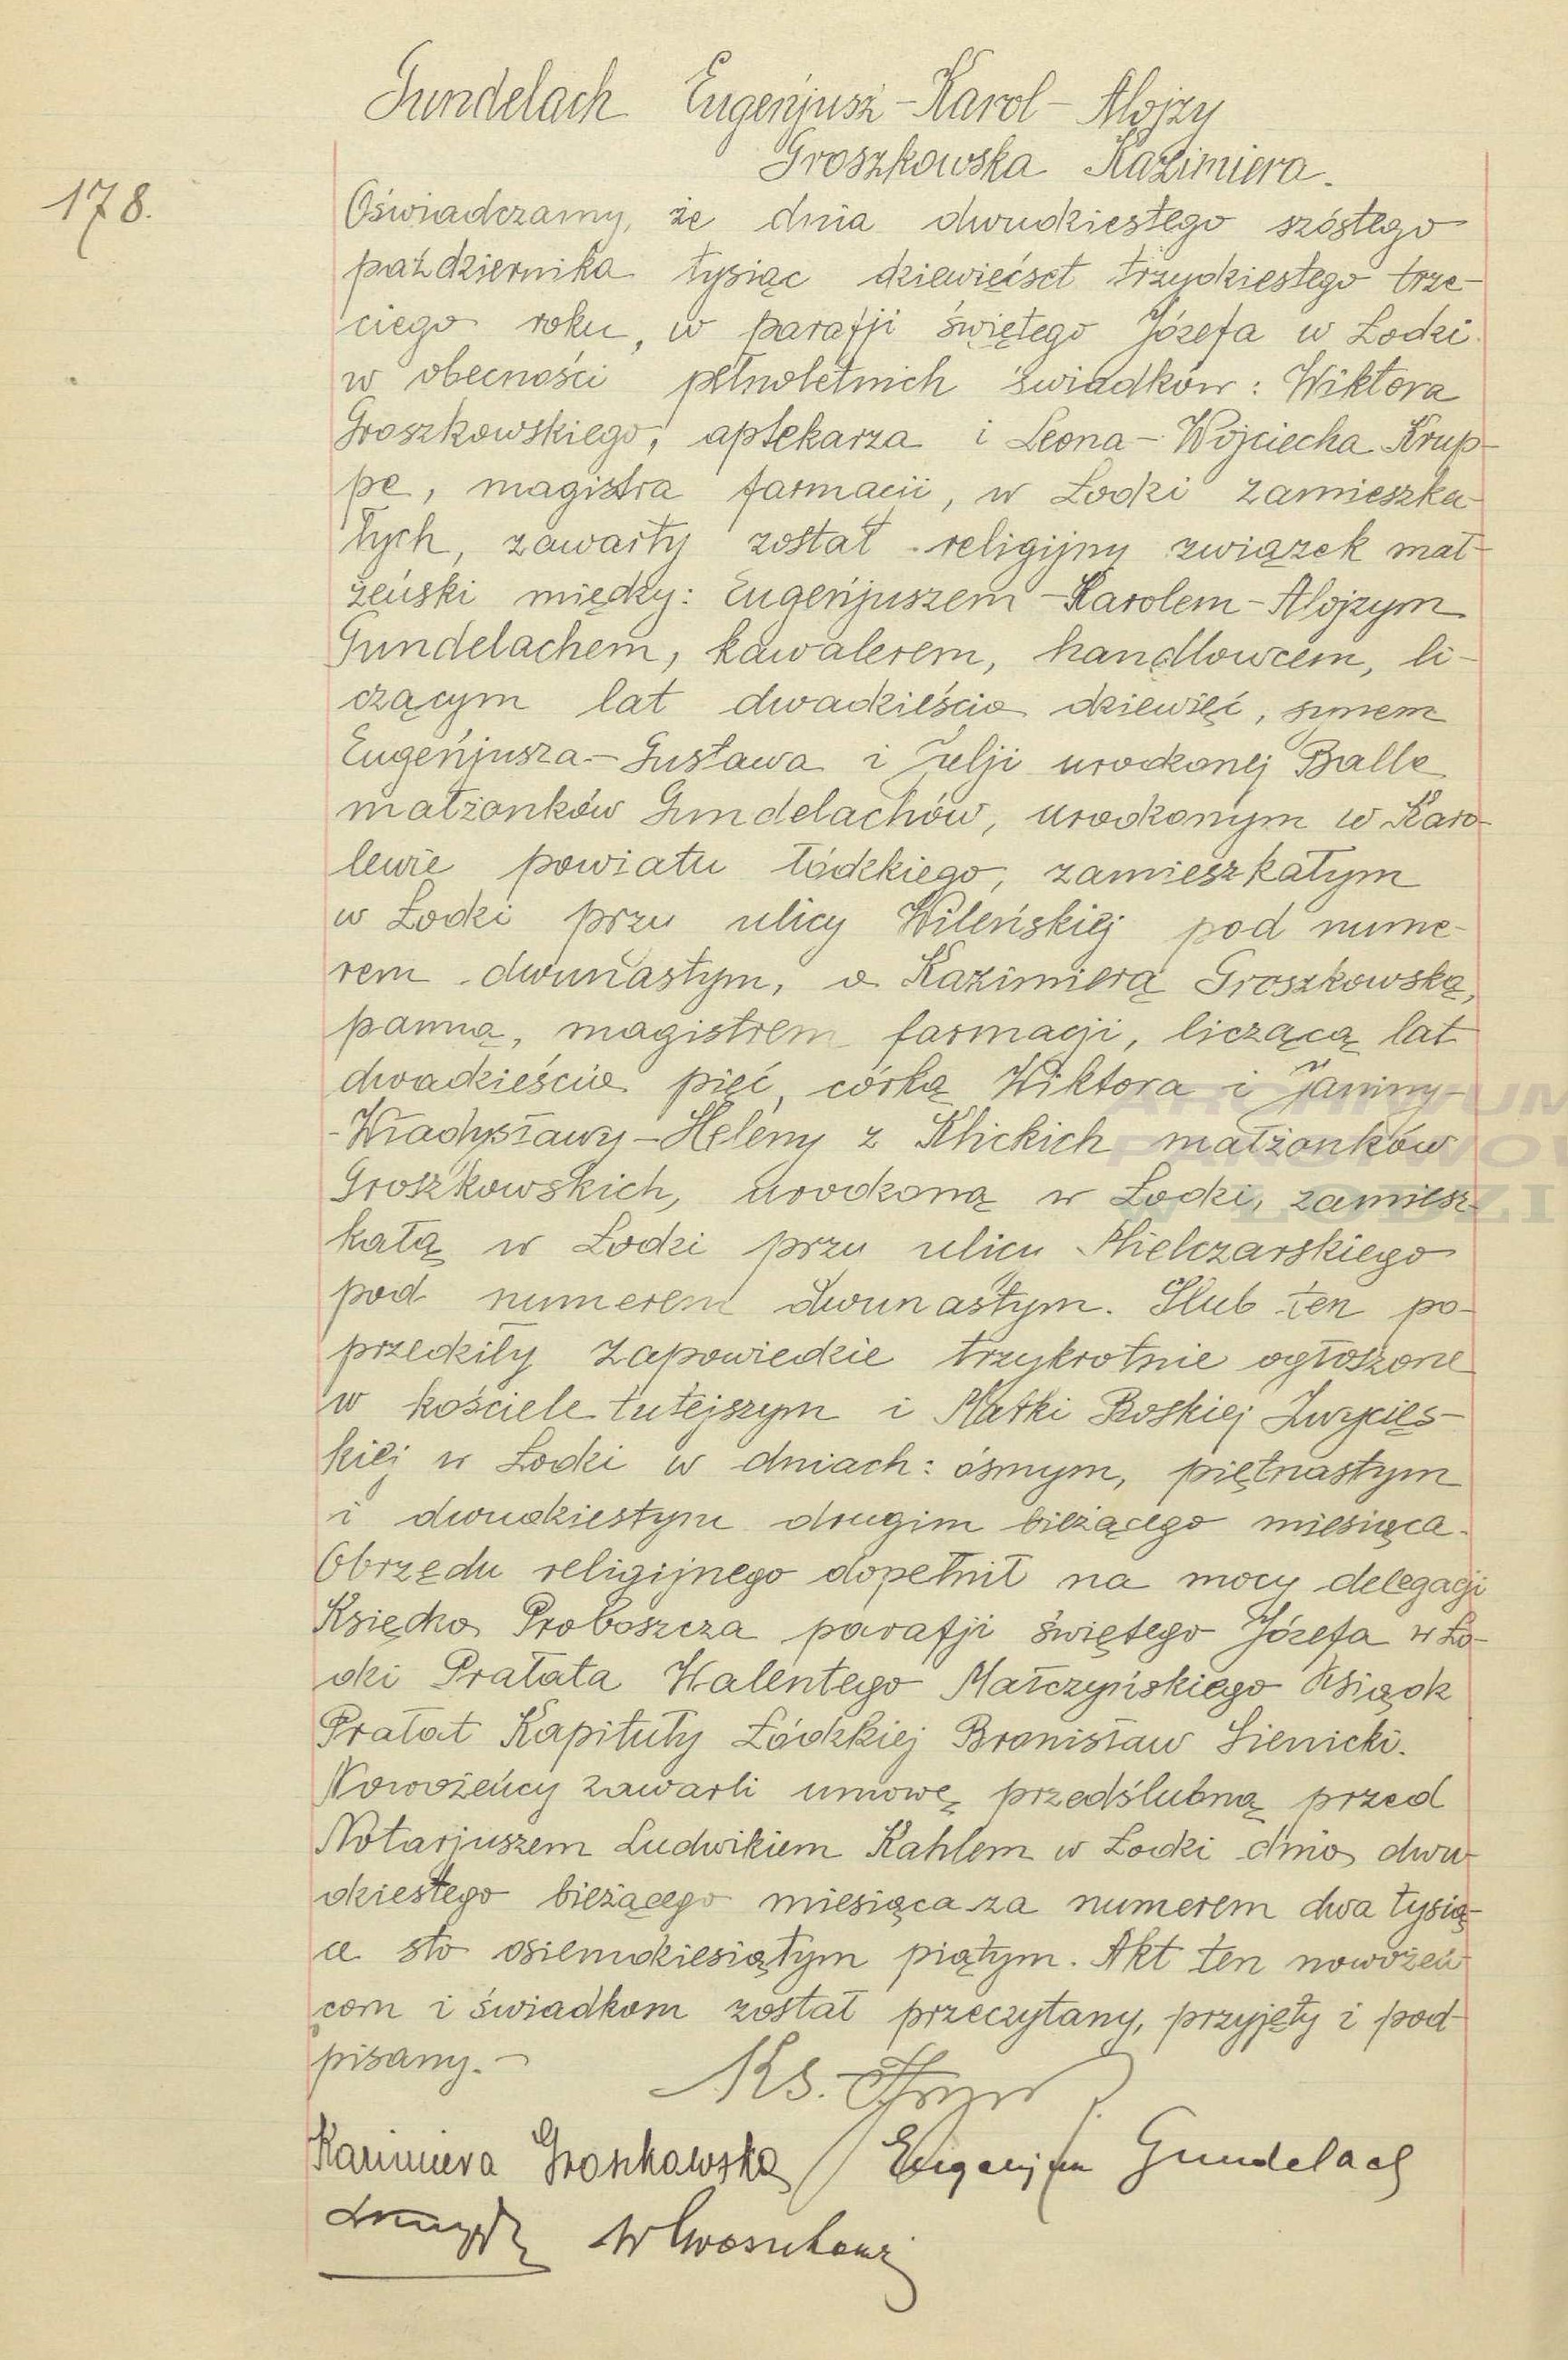 Gundelach Eugenjusz-Karol-Alojzy
Groszkowska Kazimiera.
178.
Oświadczamy, że dnia dwudziestego szóstego
października tysiąc dziewięćset trzydziestego trze-
ciego roku, w parafji świętego Józefa w Łodzi
w obecności pełnoletnich świadków: Wiktora
Groszkowskiego, aptekarza i Leona-Wojciecha Krup-
pe, magistra farmacji, w Łodzi zamieszka-
łych, zawarty został religijny związek mał-
żeński między: Eugenjuszem-Karolem-Alojzym
Gundelachem, kawalerem, handlowcem, li-
czącym lat dwadzieścia dziewięć, synem
Eugenjusza-Gustawa i Julji urodzonej Balle
małżonków Gundelachów, urodzonym w Karo-
lewie powiatu łódzkiego, zamieszkałym
w Łodzi przy ulicy Wileńskiej pod nume-
rem dwunastym, a Kazimierą Groszkowską,
panną, magistrem farmacji, liczącą lat
dwadzieścia pięć, córką Wiktora i Janiny-
-Władysławy-Heleny z Klickich małżonków
Groszkowskich, urodzoną w Łodzi, zamiesz-
kałą w Łodzi przy ulicy Mielczarskiego
pod numerem dwunastym. Ślub ten po-
przedziły zapowiedzie trzykrotnie ogłoszone
w kościele tutejszym i Matki Boskiej Zwycięs-
kiej w Łodzi w dniach: ósmym, piętnastym
i dwudziestym drugim bieżącego miesiąca.
Obrzędu religijnego dopełnił na mocy delegacji
Księdza Proboszcza parafji świętego Józefa w Ło-
dzi Prałata Walentego Małczyńskiego Ksiądz
Prałat Kapituły Łódzkiej Bronisław Sienicki.
Nowożeńcy zawarli umowę przedślubną przed
Notarjuszem Ludwikiem Kahlem w Łodzi dnia dwu-
dziestego bieżącego miesiąca za numerem dwa tysią-
ce sto osiemdziesiątym piątym. Akt ten nowożeń-
com i świadkom został przeczytany, przyjęty i pod-
pisany.-
Ks.
Kazimiera Groszkowska Eugenjusz Gundelach
W Groszkowski
ARCHIWUM
PAŃSTWOW
W ŁODZI